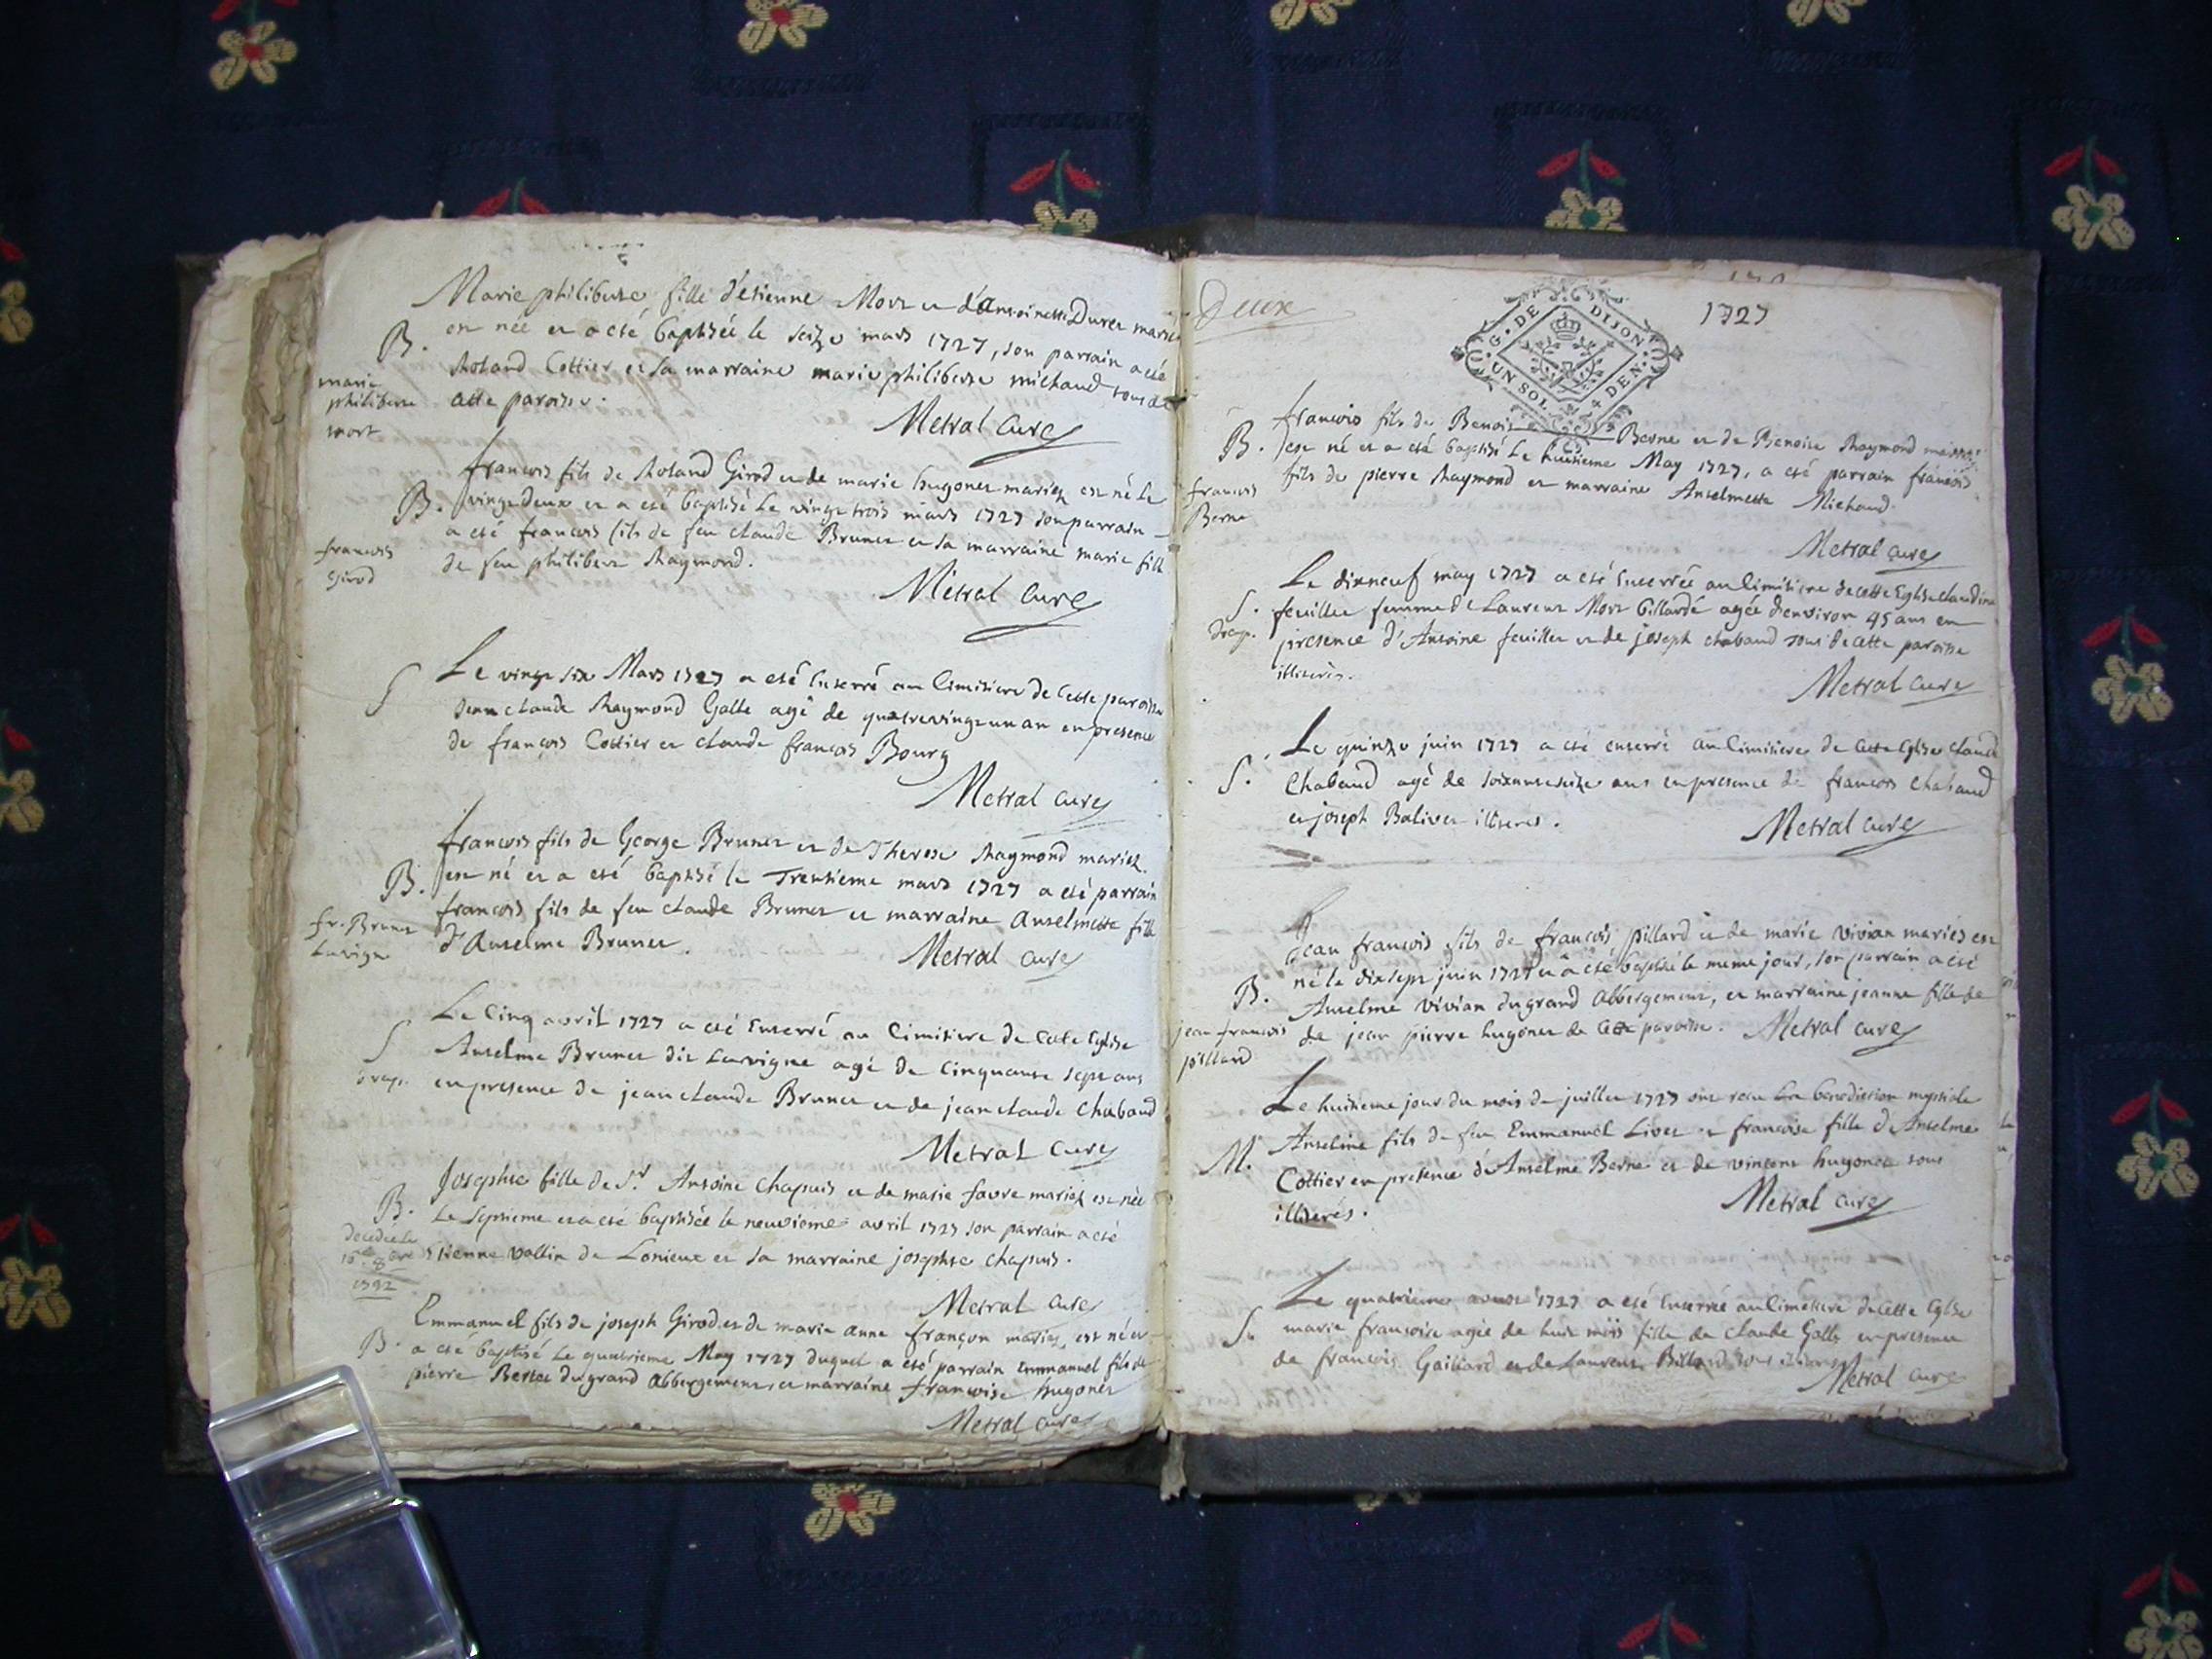 Marie philiberte fille d'étienne Mort et d'antoinette Duret mariez
B. est née et a esté baptisée le seize mars 1727, son parrain a été
Roland Cottier et sa marraine marie philiberte michaud tous de
marie
philiberte
mort
cette paroisse.
Metral Curé
francois fils de Roland Girod et de marie hugonet mariez est né le
B. vingt deux et a esté baptisé le vingt trois mars 1727 son parrain
a esté francois fils de feu claude Brunet et sa marraine marie fille
francois
Girod
de feu philibert Raymond.
Metral Curé
Le vingt six Mars 1727 a esté enterré au Cimitiere de Cette paroisse
S Jean claude Raymond Galle agé de quatrevingt un an en presence
de françois Cottier et claude françois Bourg
Metral curé
francois fils de George Brunet et de Therese Raymond mariez
B. est né et a esté baptisé le Trentieme mars 1727 a esté parrain
francois fils de feu claude Brunet et marraine Anselmette fille
fr. Brunet
Lavigne
d'Anselme Brunet.
Metral curé
Le Cinq avril 1727 a esté Enterré au Cimitiere de Cette Eglise
S Anselme Brunet dit Lavigne agé de Cinquante sept ans
3 en presence de jean claude Brunet et de jean claude Chabaud
Metral Curé
Josephte fille de Sr. Antoine Chapuis et de marie favre mariez est née
B. Le septieme et a esté baptisée le neuvieme avril 1727 son parrain a esté
Decedée le
etienne Vallin de Lonieux et sa marraine josephte Chapuis.
Metral Curé
Emmanuel fils de joseph Girod et de marie anne françon mariez est né et
B. a esté baptisé Le quatrieme May 1727 duquel a esté parrain Emmanuel fils de
pierre Bertet du grand Abbergement et marraine françoise hugonet
Metral curé
Deux
1727
G. DE DIJON
UN SOL 4 DEN.
francois fils de Benoit Berne et de Benoite Raymond mariez
B. est né et a esté baptisé Le huitieme May 1727, a esté parrain francois
francois
Berne
fils de pierre Raymond et marraine Anselmette Michaud
Metral curé
Le dixneuf may 1727 a esté Enterrée au Cimitiere de cette Eglise claudine
S. feuillet femme de Laurent Mort Billardé agée d'environ 45 ans en
presence d'Antoine feuillet et de joseph chabaud tous de cette paroisse
illiterés.
Metral Curé
Le quinze juin 1727 a esté enterré au Cimitiere de Cette Eglise Claude
S. Chabaud agé de soixante seize ans en presence de francois Chabaud
et joseph Balivet illiterés.
Metral curé
Jean francois fils de francois pillard et de marie vivian mariés est
né le dixsept juin 1727 et a esté baptisé le meme jour, son parrain a esté
B. Anselme vivian du grand Abbergement, et marraine jeanne fille de
jean francois
pillard
de jean pierre hugonet de Cette paroisse. Metral curé
Le huitieme jour du mois de juillet 1727 ont receu La benediction nuptiale
M. Anselme fils de feu Emmanuel Livet et francoise fille d'Anselme
Cottier en présence d'Anselme Berne et de vincent hugonet tous
illiterés.
Metral curé
Le quatrieme aoust 1727 a esté Enterrée au Cimetiere de cette Eglise
S. marie francoise agée de huit mois fille de Claude Galle en presence
de francois Gaillard et de Laurent Billard tous illiterés
Metral curé